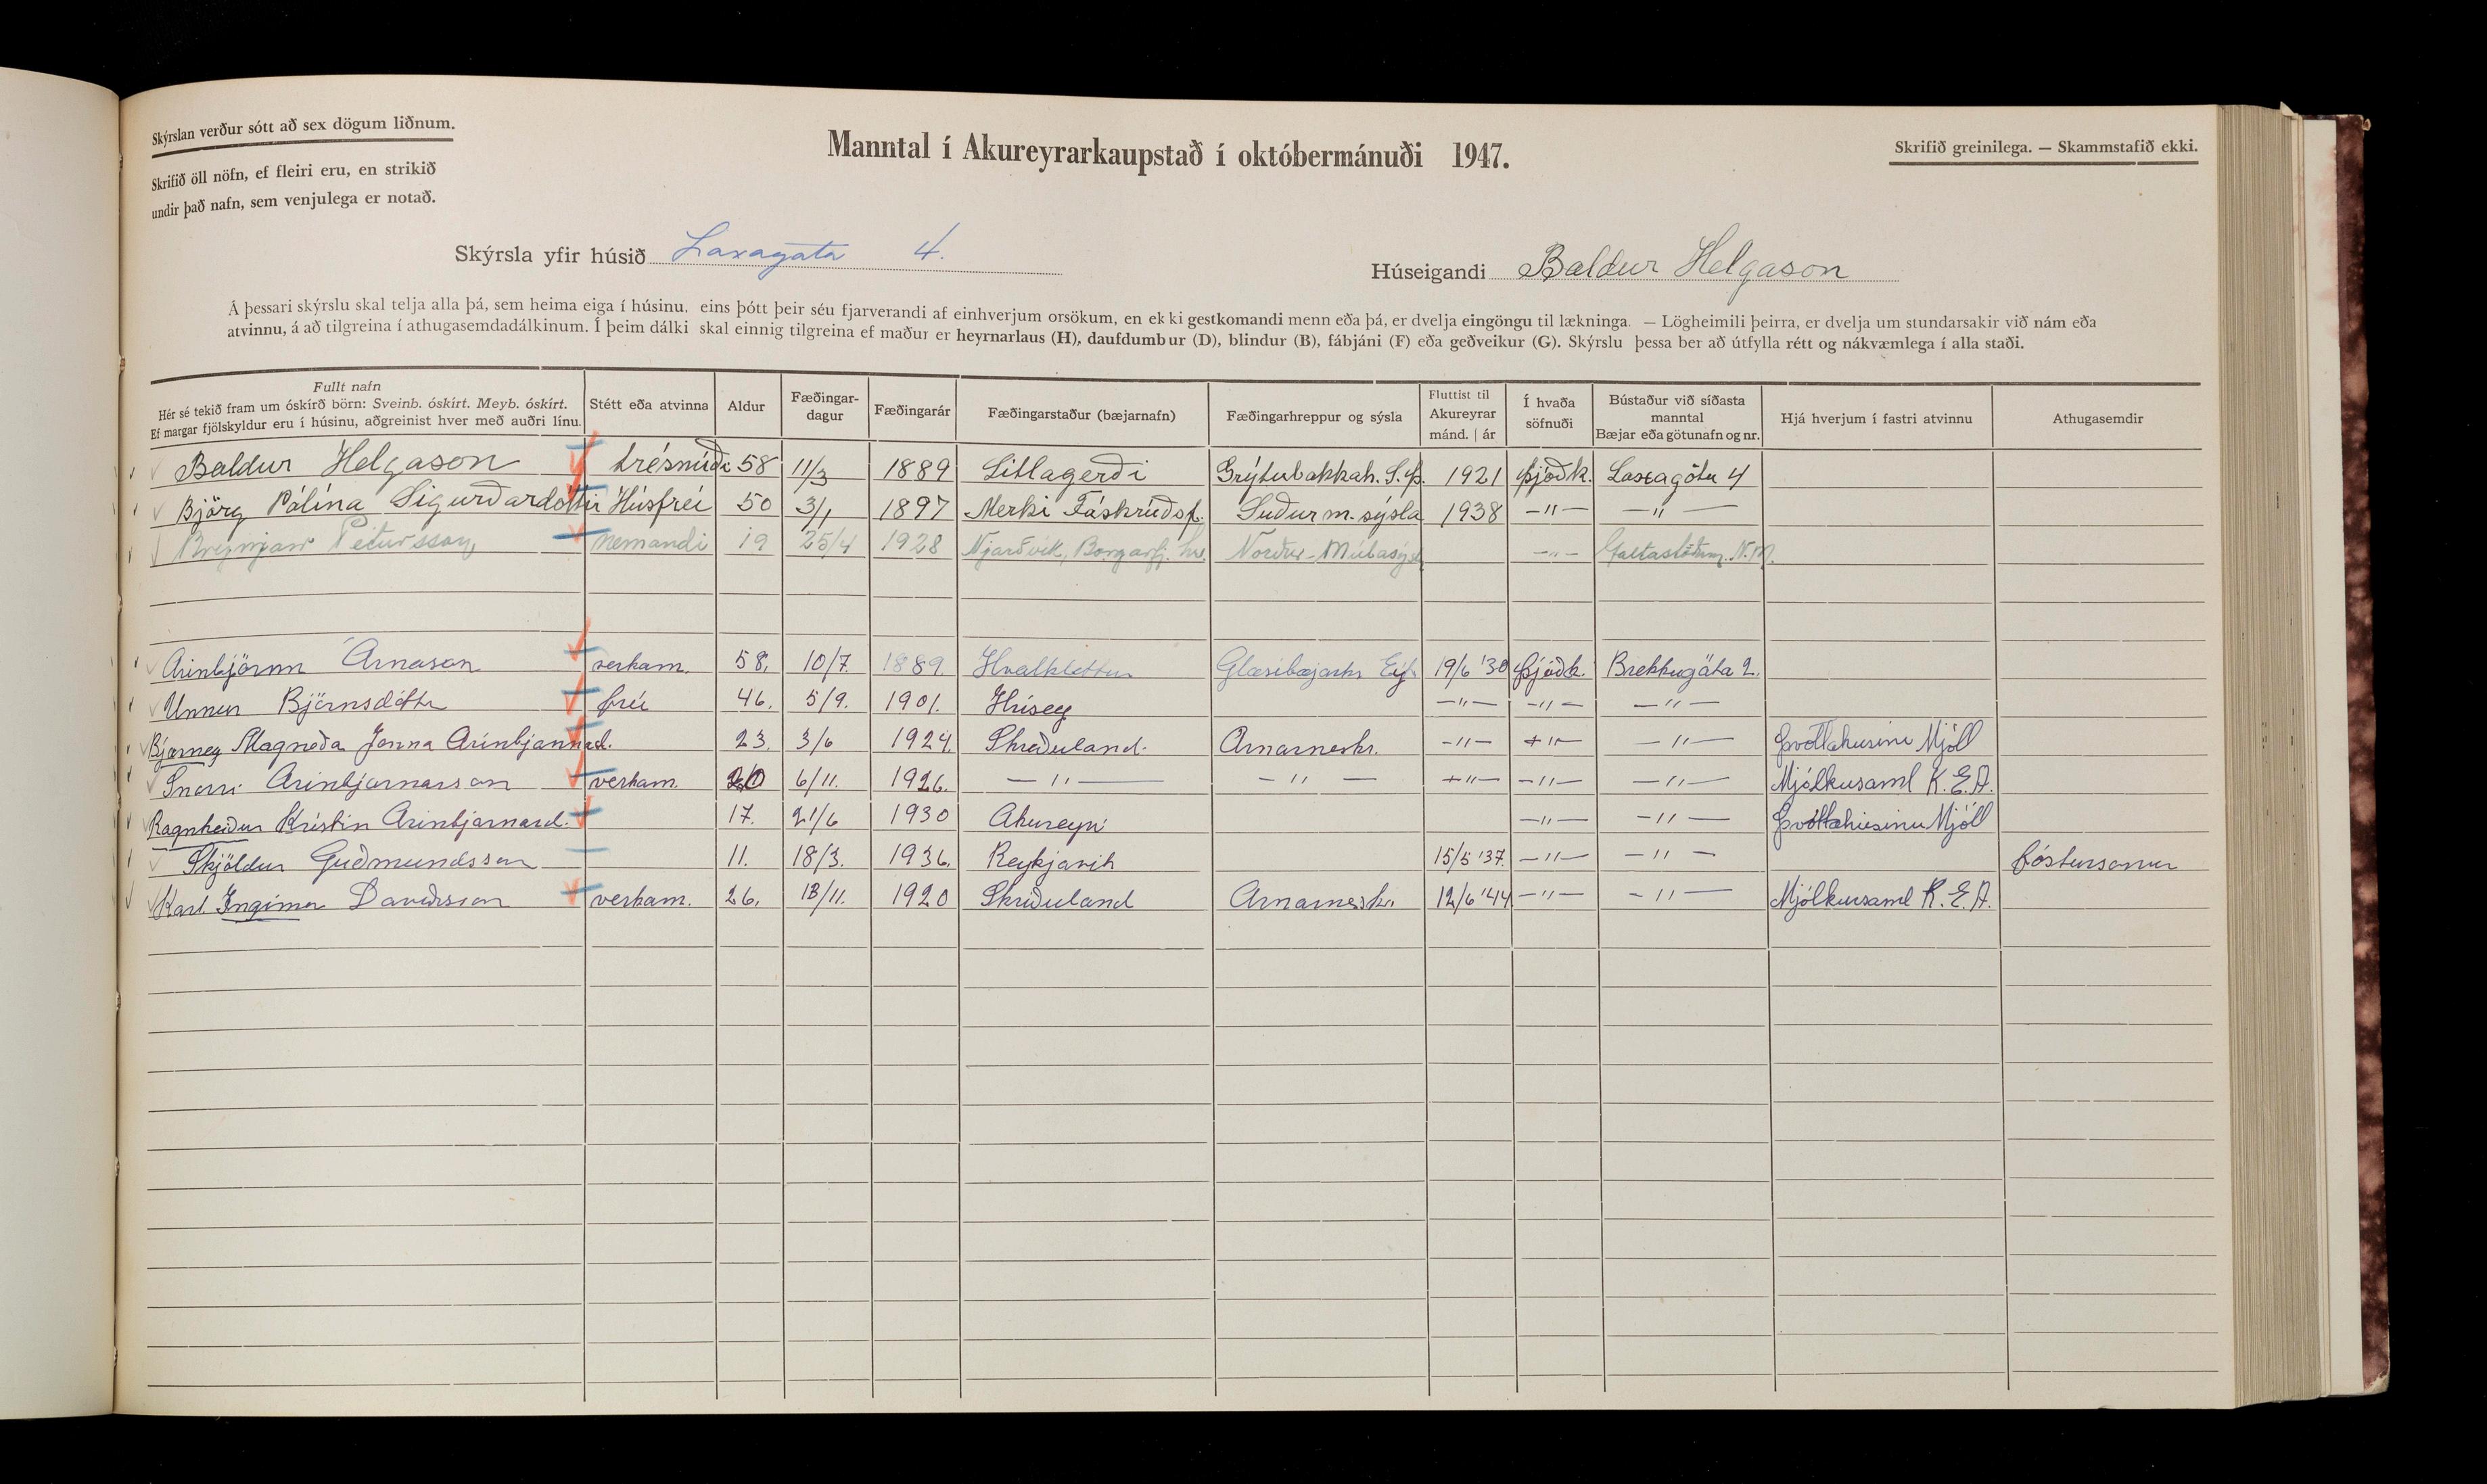 Skýrslan verður sótt að sex dögum liðnum.
Skrifið öll nöfn, ef fleiri eru, en strikið
undir það nafn, sem venjulega er notað.
Manntal í Akureyrarkaupstað í októbermánuði 1947.
Skrifið greinilega. — Skammstafið ekki.
Skýrsla yfir húsið Laxagata 4.
Húseigandi Baldur Helgason
Á þessari skýrslu skal telja alla þá, sem heima eiga í húsinu, eins þótt þeir séu fjarverandi af einhverjum orsökum, en ekki gestkomandi menn eða þá, er dvelja eingöngu til lækninga. — Lögheimili þeirra, er dvelja um stundarsakir við nám eða
atvinnu, á að tilgreina í athugasemdadálkinum. Í þeim dálki skal einnig tilgreina ef maður er heyrnarlaus (H), daufdumbur (D), blindur (B), fábjáni (F) eða geðveikur (G). Skýrslu þessa ber að útfylla rétt og nákvæmlega í alla staði.
Fullt nafn
Hér sé tekið fram um óskírð börn: Sveinb. óskírt. Meyb. óskírt.
Ef margar fjölskyldur eru í húsinu, aðgreinist hver með auðri línu.
Stétt eða atvinna
Aldur
Fæðingar-
dagur
Fæðingarár
Fæðingarstaður (bæjarnafn)
Fæðingarhreppur og sýsla
Fluttist til
Akureyrar
mánd. | ár
Í hvaða
söfnuði
Bústaður við síðasta
manntal
Bæjar eða götunafn og nr.
Hjá hverjum í fastri atvinnu
Athugasemdir
Baldur Helgason trésmíði 58 11/3 1889 Litlagerði Grýtubakkah. S.Þ. 1921 Þjóðk. Laxagötu 4
Björg Pálína Sigurðardóttir Húsfrú 50 3/1 1897 Merki Fáskrúðsf. Suðurm.sýsla 1938 —"— —"—
Brynjar Pétursson nemandi 19 25/4 1928 Njarðvík, Borgarfj. hr. Norður-Múlasýsla —"— N.M.
Arinbjörnn Árnason verkam. 58. 10/7. 1889. Hvalklettur Glæsibæjarhr Eyj. 19/6 '30 Þjóðk. Brekkugäta 2.
Unnur Björnsdóttr frú 46. 5/9. 1901. Hrísey —"— —"— —"—
Bjarney Magneða Jonna Arinbjarnard. 23. 3/6 1924. Skriðuland. Arnarneshr. —"— —"— —"— Þvottahusinu Mjöll
Snorri Arinbjarnarson verkam. 20 6/11. 1926. —"— —"— —"— —"— —"— Mjólkusaml K.E.A.
Ragnheiður Kristin Arinbjarnard. 17. 21/6 1930 Akureyri —"— —"— Þvottahúsinu Mjöll
Skjöldur Guðmundsson 11. 18/3. 1936. Reykjavik 15/5 '37. —"— —"— fóstursonur
Karl Ingimar Davíðsson verkam. 26. 13/11. 1920 Skriðuland Arnarneshr. 12/6 '44 —"— —"— Mjólkursaml K.E.A.